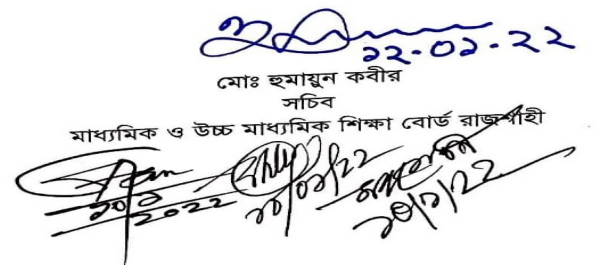 ১২-০১-২২
মোঃ হুমায়ুন কবীর
সচিব
মাধ্যমিক ও উচ্চ মাধ্যমিক শিক্ষা বোর্ড রাজশাহী
২০২২ ১০/০১/২২ ১০/১/২২